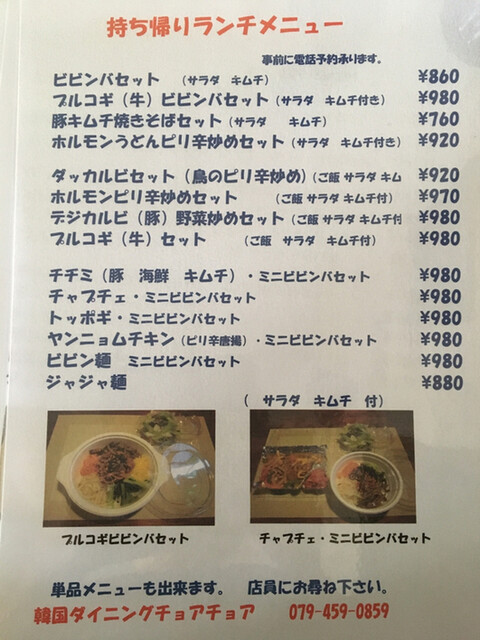 持ち帰りランチメニュー
事前に電話予約承ります。
ビビンバセット （サラダ キムチ） ¥860
プルコギ（牛）ビビンバセット（サラダ キムチ付き） ¥980
豚キムチ焼きそばセット（サラダ キムチ） ¥760
ホルモンうどんピリ辛炒めセット（サラダ キムチ付き） ¥920
ダッカルビセット（鳥のピリ辛炒め）（ご飯 サラダ キム ¥920
ホルモンピリ辛炒めセット （ご飯 サラダ キムチ付） ¥970
デジカルビ（豚）野菜炒めセット（ご飯 サラダ キムチ付 ¥980
プルコギ（牛）セット （ご飯 サラダ キムチ付） ¥980
チヂミ（豚 海鮮 キムチ）・ミニビビンバセット ¥980
チャプチェ・ミニビビンバセット ¥980
トッポギ・ミニビビンバセット ¥980
ヤンニョムチキン（ピリ辛唐揚）・ミニビビンバセット ¥980
ビビン麺 ミニビビンバセット ¥980
ジャジャ麺 ¥880
（ サラダ キムチ 付）
プルコギビビンバセット
チャプチェ・ミニビビンバセット
単品メニューも出来ます。 店員にお尋ね下さい。
韓国ダイニングチョアチョア 079-459-0859